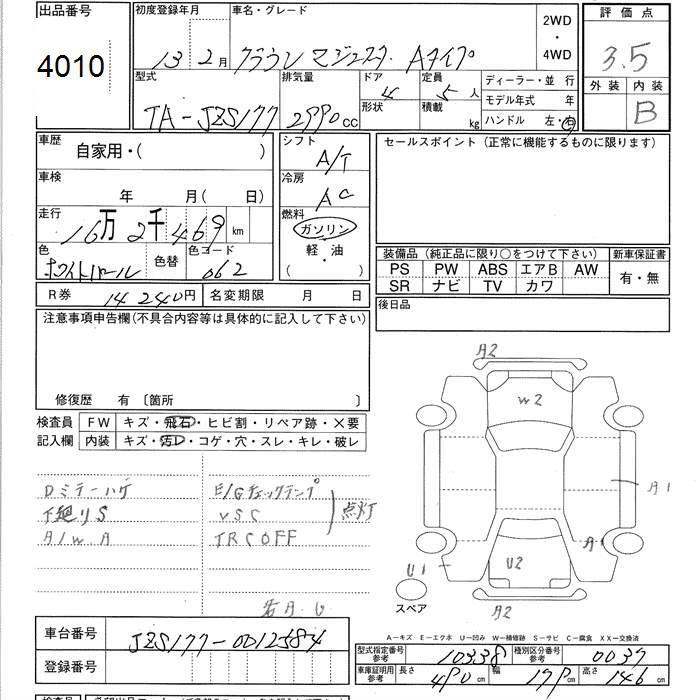 出品番号
4010
初度登録年月
13 2月
車名・グレード
クラウン マジェスタ Aタイプ
2WD
・
4WD
評価点
3.5
外装 内装
B
型式
TA-JZS177
排気量
2990cc
ドア
4
形状
定員
5人
積載
kg
ディーラー・並行
モデル年式 年
ハンドル 左・右
車歴
自家用・( )
車検
年 月( 日)
走行
16万2千469km
色
ホワイトパール
色替
色コード
062
シフト
A/T
冷房
AC
燃料
ガソリン
軽・油
( )
セールスポイント(正常に機能するものに限ります)
装備品(純正品に限り○をつけて下さい)
新車保証書
PS PW ABS エアB AW
SR ナビ TV カワ
有・無
R券 14240円
名変期限 月 日
後日品
注意事項申告欄(不具合内容等は具体的に記入して下さい)
修復歴 有〔箇所 〕
検査員
記入欄
FW キズ・飛石・ヒビ割・リペア跡・×要
内装 キズ・汚レ・コゲ・穴・スレ・キレ・破レ
Dミラーハゲ
下廻りS
A/W A
E/Gチェックランプ
VSC
TRC OFF
点灯
A2
W2
A1
A1
U2
U1
A2
スペア
A-キズ E-エクボ U-凹み W-補修跡 S-サビ C-腐食 XX-交換済
車台番号
JZS177-0012584
登録番号
型式指定番号
参考
10338
種別区分番号
参考
0037
車庫証明用
参考
長さ
490cm
幅
179cm
高さ
146cm